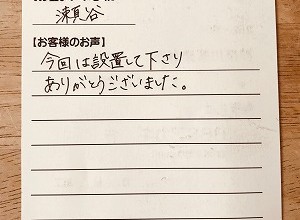 瀬見谷
【お客様のお声】
今回は設置して下さり
ありがとうございました。